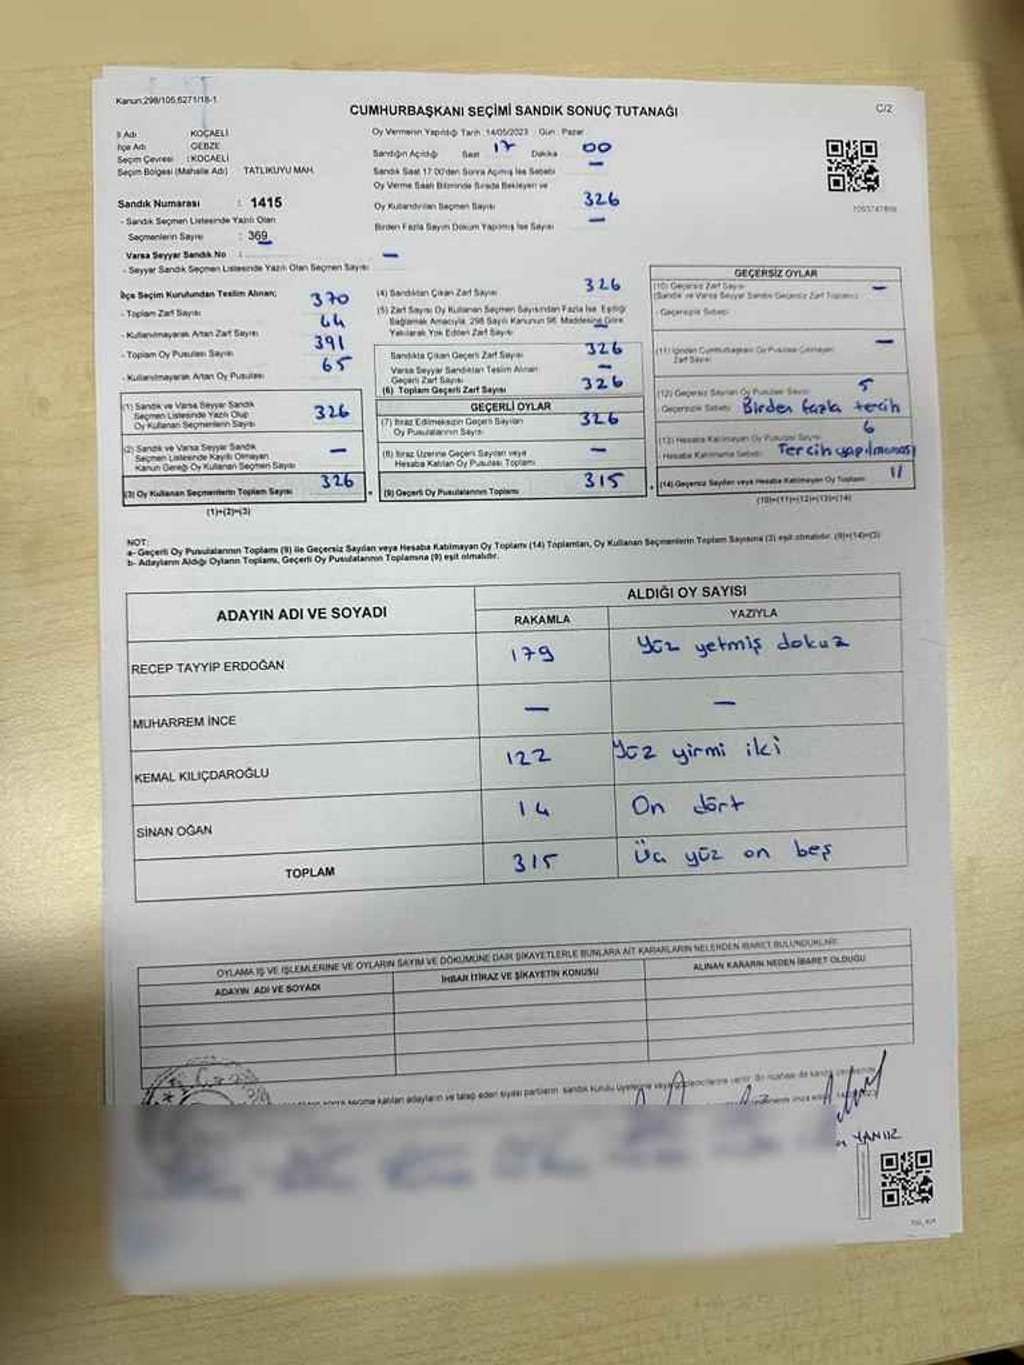 Kanun:298/105,6271/18-1
CUMHURBAŞKANI SEÇİMİ SANDIK SONUÇ TUTANAĞI
C/2
İl Adı KOÇAELİ
İlçe Adı GEBZE
Seçim Çevresi : KOCAELİ
Seçim Bölgesi (Mahalle Adı) TATLIKUYU MAH.
Sandık Numarası : 1415
- Sandık Seçmen Listesinde Yazılı Olan
Seçmenlerin Sayısı : 369
Varsa Seyyar Sandık No :
- Seyyar Sandık Seçmen Listesinde Yazılı Olan Seçmen Sayısı
Oy Vermenin Yapıldığı Tarih : 14/05/2023 Gün : Pazar
Sandığın Açıldığı Saat 17 Dakika 00
Sandık Saat 17:00'den Sonra Açılmış İse Sebebi —
Oy Verme Saati Bitiminde Sırada Bekleyen ve
Oy Kullandırılan Seçmen Sayısı 326
Birden Fazla Sayım Döküm Yapılmış İse Sayısı —
İlçe Seçim Kurulundan Teslim Alınan;
- Toplam Zarf Sayısı 370
- Kullanılmayarak Artan Zarf Sayısı 44
- Toplam Oy Pusulası Sayısı 391
- Kullanılmayarak Artan Oy Pusulası 65
(1) Sandık ve Varsa Seyyar Sandık
Seçmen Listesinde Yazılı Olup
Oy Kullanan Seçmenlerin Sayısı 326
(2) Sandık ve Varsa Seyyar Sandık
Seçmen Listesinde Kayıtlı Olmayan
Kanun Gereği Oy Kullanan Seçmen Sayısı —
(3) Oy Kullanan Seçmenlerin Toplam Sayısı 326
(1)+(2)=(3)
(4) Sandıktan Çıkan Zarf Sayısı 326
(5) Zarf Sayısı Oy Kullanan Seçmen Sayısından Fazla İse, Eşitliği
Sağlamak Amacıyla, 298 Sayılı Kanunun 98. Maddesine Göre
Yakılarak Yok Edilen Zarf Sayısı —
Sandıkta Çıkan Geçerli Zarf Sayısı 326
Varsa Seyyar Sandıktan Teslim Alınan
Geçerli Zarf Sayısı —
(6) Toplam Geçerli Zarf Sayısı 326
GEÇERLİ OYLAR
(7) İtiraz Edilmeksizin Geçerli Sayılan
Oy Pusulalarının Sayısı 326
(8) İtiraz Üzerine Geçerli Sayılan veya
Hesaba Katılan Oy Pusulası Toplamı —
(9) Geçerli Oy Pusulalarının Toplamı 315
GEÇERSİZ OYLAR
(10) Geçersiz Zarf Sayısı —
(Sandık ve Varsa Seyyar Sandık Geçersiz Zarf Toplamı)
- Geçersizlik Sebebi
(11) İçinden Cumhurbaşkanı Oy Pusulası Çıkmayan
Zarf Sayısı —
(12) Geçersiz Sayılan Oy Pusulası Sayısı 5
Geçersizlik Sebebi Birden fazla tercih
(13) Hesaba Katılmayan Oy Pusulası Sayısı 6
- Hesaba Katılmama Sebebi Tercih yapılmaması
(14) Geçersiz Sayılan veya Hesaba Katılmayan Oy Toplamı 11
(10)+(11)+(12)+(13)=(14)
NOT:
a- Geçerli Oy Pusulalarının Toplamı (9) ile Geçersiz Sayılan veya Hesaba Katılmayan Oy Toplamı (14) Toplamları, Oy Kullanan Seçmenlerin Toplam Sayısına (3) eşit olmalıdır. (9)+(14)=(3)
b- Adayların Aldığı Oyların Toplamı, Geçerli Oy Pusulalarının Toplamına (9) eşit olmalıdır.
ADAYIN ADI VE SOYADI
ALDIĞI OY SAYISI
RAKAMLA YAZIYLA
RECEP TAYYİP ERDOĞAN 179 Yüz yetmiş dokuz
MUHARREM İNCE — —
KEMAL KILIÇDAROĞLU 122 Yüz yirmi iki
SİNAN OĞAN 14 On dört
TOPLAM 315 Üç yüz on beş
OYLAMA İŞ VE İŞLEMLERİNE VE OYLARIN SAYIM VE DÖKÜMÜNE DAİR ŞİKAYETLERLE BUNLARA AİT KARARLARIN NELERDEN İBARET BULUNDUKLARI
ADAYIN ADI VE SOYADI İHBAR İTİRAZ VE ŞİKAYETİN KONUSU ALINAN KARARIN NEDEN İBARET OLDUĞU
seçime katılan adayların ve talep eden siyasi partilerin sandık kurulu üyelerine veya